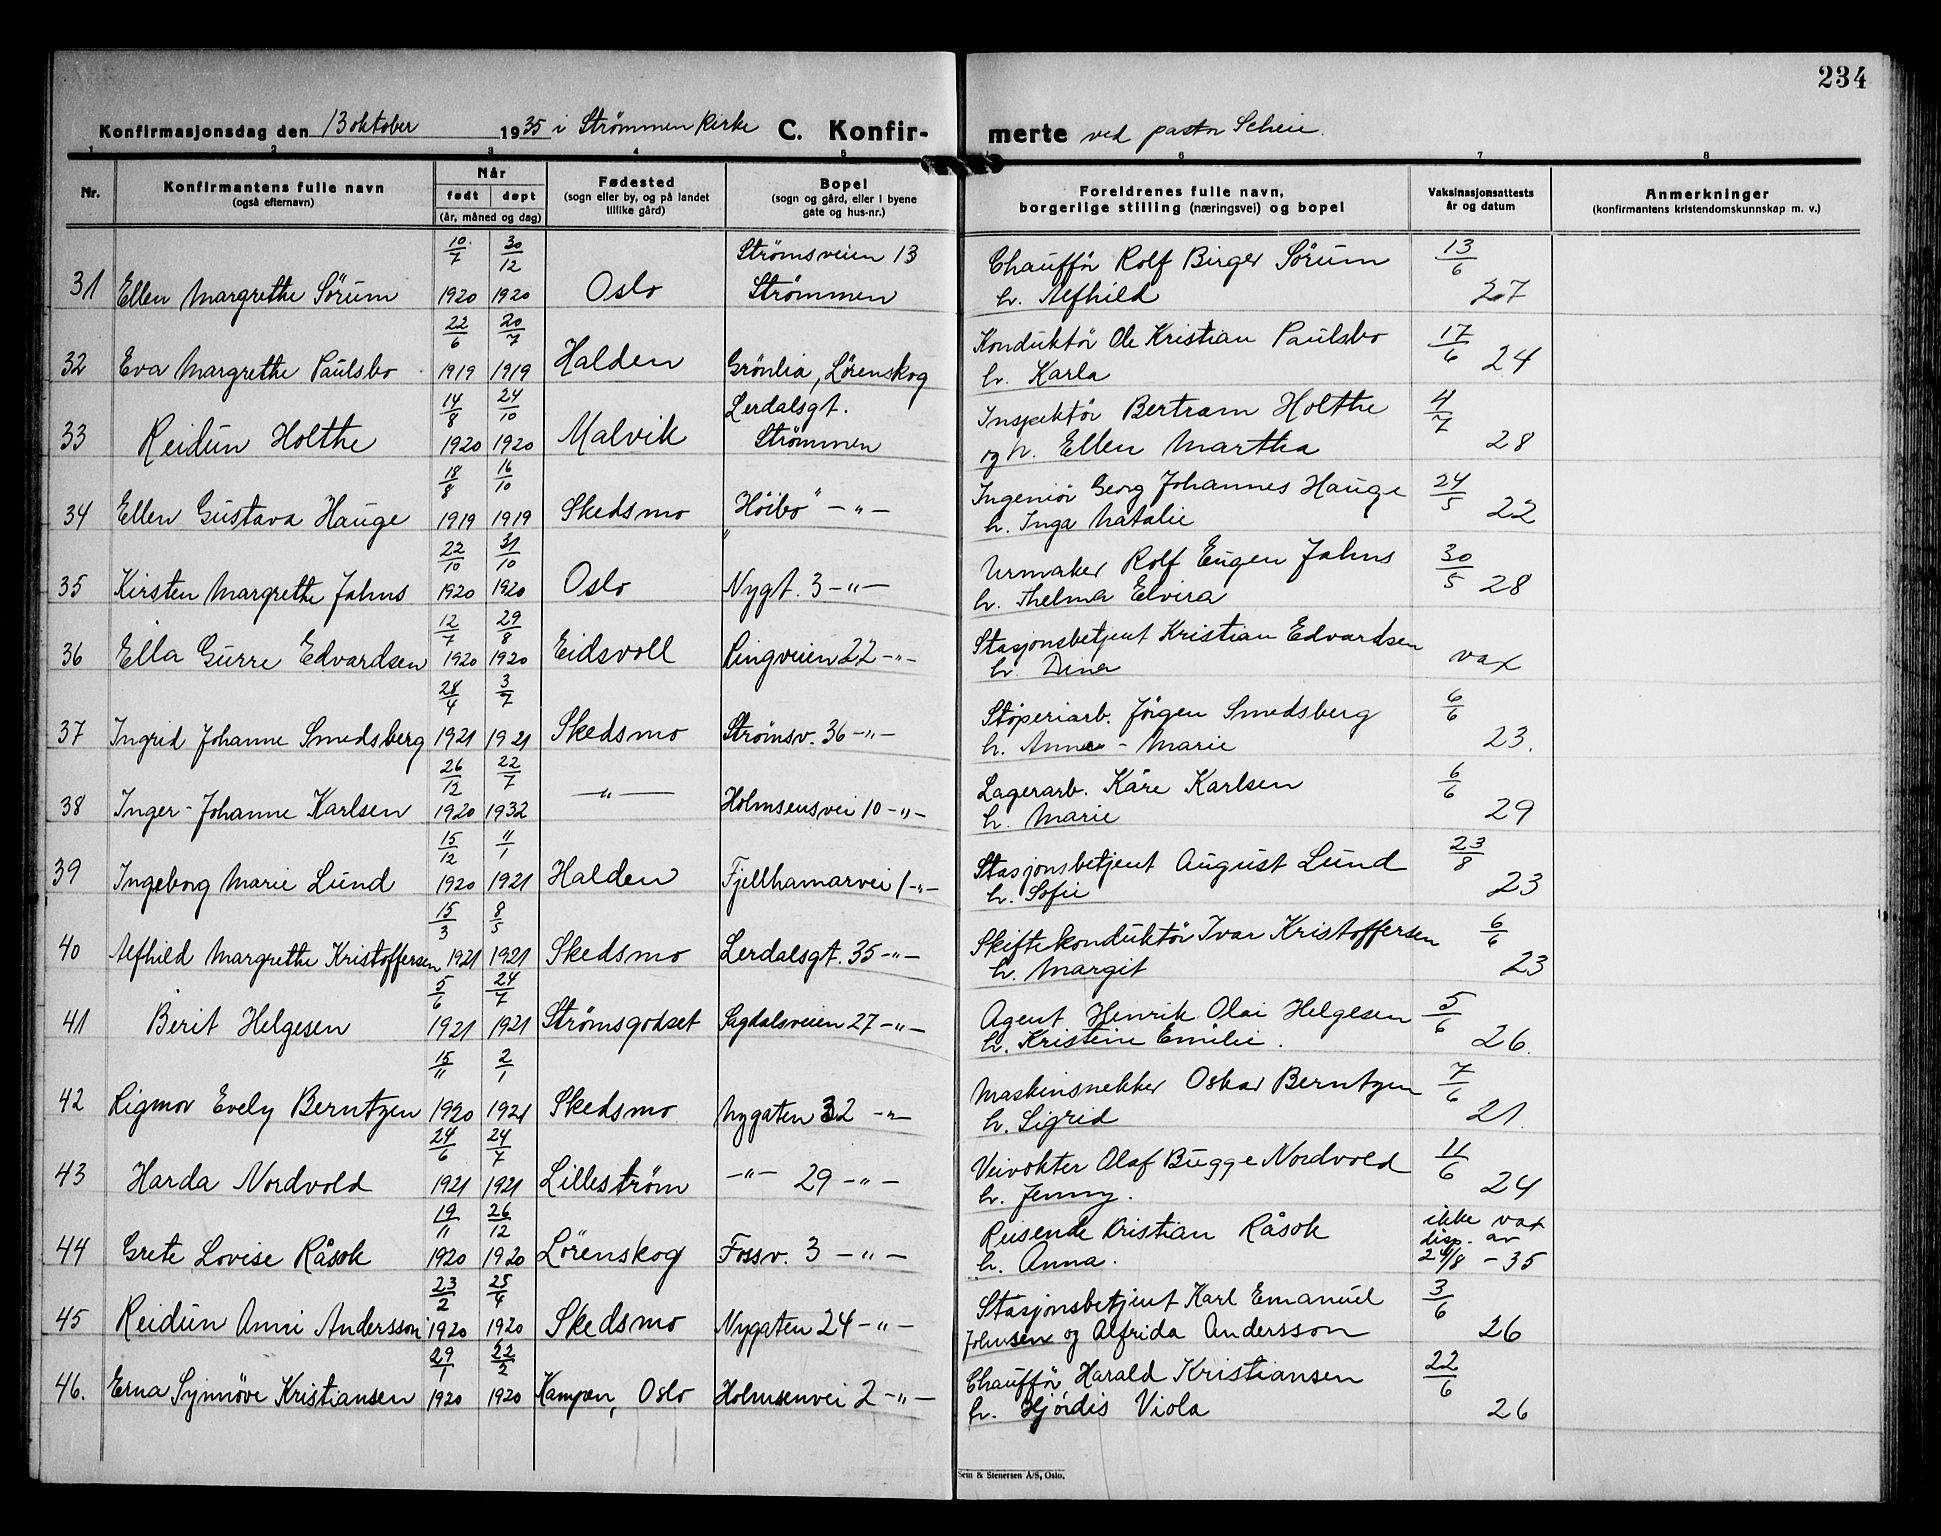 234
Konfirmasjonsdag den 13 oktober 1935 i Strømmen kirke C. Konfir- merte ved pastor Scheie.
1 2 3 4 5 6 7 8
Nr. Konfirmantens fulle navn (også efternavn) Når født døpt (år, måned og dag) Fødested (sogn eller by, og på landet tillike gård) Bopel (sogn og gård, eller i byene gate og hus-nr.) Foreldrenes fulle navn, borgerlige stilling (næringsvei) og bopel Vaksinasjonsattests år og datum Anmerkninger (konfirmantens kristendomskunnskap m. v.)
10/7 30/12 Strømsveien 13 Chauffør Rolf Birger Sørum 13/6
31 Ellen Margrethe Sørum 1920 1920 Oslo Strømmen h. Alfhild 27
22/6 20/7 Konduktør Ole Kristian Paulsbo 17/6
32 Eva Margrethe Paulsbo 1919 1919 Halden Grønlia, Lørenskog h. Karla 24
14/8 24/10 Lerdalsgt. Inspektør Bertram Holthe 4/7
33 Reidun Holthe 1920 1920 Malvik Strømmen og h. Ellen Martha 28
18/8 16/10 Ingeniør Georg Johannes Hauge 24/5
34 Ellen Gustava Hauge 1919 1919 Skedsmo "Høibo" -"- h. Inga Natalie 22
22/10 31/10 Urmaker Rolf Eugen Jahns 30/5
35 Kirsten Margrethe Jahns 1920 1920 Oslo Nygt. 3 -"- h. Thelma Elvira 28
12/7 29/8 Stasjonsbetjent Kristian Edvardsen
36 Ella Gurre Edvardsen 1920 1920 Eidsvoll Ringveien 22 -"- h. Dina vax
28/4 3/7 Støperiarb. Jörgen Smedsberg 6/6
37 Ingrid Johanne Smedsberg 1921 1921 Skedsmo Strømsv. 36 -"- h. Anna - Marie 23.
26/12 22/7 Lagerarb. Kåre Karlsen 6/6
38 Inger-Johanne Karlsen 1920 1932 -"- Holmsensvei 10 -"- h. Marie 29
15/12 11/1 Stasjonsbetjent August Lund 23/8
39 Ingeborg Marie Lund 1920 1921 Halden Fjellhamarvei 1 -"- h. Sofie 23
15/3 8/5 Skiftekonduktør Ivar Kristoffersen 6/6
40 Alfhild Margrethe Kristoffersen 1921 1921 Skedsmo Lerdalsgt. 35 -"- h. Margit 23
5/6 24/7 Agent Henrik Olai Helgesen 5/6
41 Berit Helgesen 1921 1921 Strømsgodset Sagdalsveien 27 -"- h. Kristine Emilie. 26.
15/11 2/1 Maskinsnekker Oskar Berntzen 7/6
42 Rigmor Evely Berntzen 1920 1921 Skedsmo Nygaten 32 -"- h. Sigrid 21.
24/6 24/7 Veivokter Olaf Bugge Nordvold 11/6
43 Harda Nordvold 1921 1921 Lillestrøm -"- 29 -"- h. Jenny. 24
19/11 26/12 Reisende Kristian Råsok ikke vax disp. av
44 Grete Lovise Råsok 1920 1920 Lørenskog Fossv. 3 -"- h. Anna. 24/8 - 35
23/2 25/4 Stasjonsbetjent Karl Emanuel 3/6
45 Reidun Anni Andersson 1920 1920 Skedsmo Nygaten 24 -"- Johnsen og Alfrida Andersson 26
29/1 22/2 Chauffør Harald Kristiansen 22/6
46. Erna Synnøve Kristiansen 1920 1920 Kampen, Oslo Holmsenvei 2 -"- h. Hjørdis Viola 26
Sem & Stenersen A/S, Oslo.